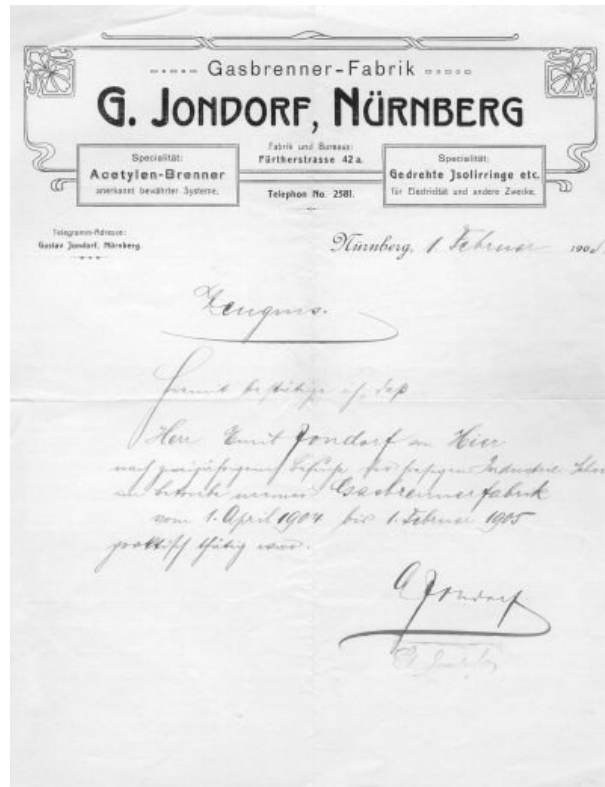 Gasbrenner-Fabrik
G. JONDORF, NÜRNBERG
Spezialität:
Acetylen-Brenner
anerkannt bewährter Systeme.
Fabrik und Bureaus:
Fürtherstrasse 42 a.
Telephon No. 2581.
Spezialität:
Gedrehte Jsolirringe etc.
für Electricität und andere Zwecke.
Telegramm-Adresse:
Gustav Jondorf, Nürnberg.
Nürnberg, 1 Februar 190
Zeugnis.
Hiermit bestätige ich, daß
Herr Emil Jondorf von Hier
nach zweijährigem Besuche der hiesigen Industrie
im Betriebe meiner Gasbrennerfabrik
vom 1. April 1904 bis 1. Februar 1905
praktisch thätig war.
G Jondorf